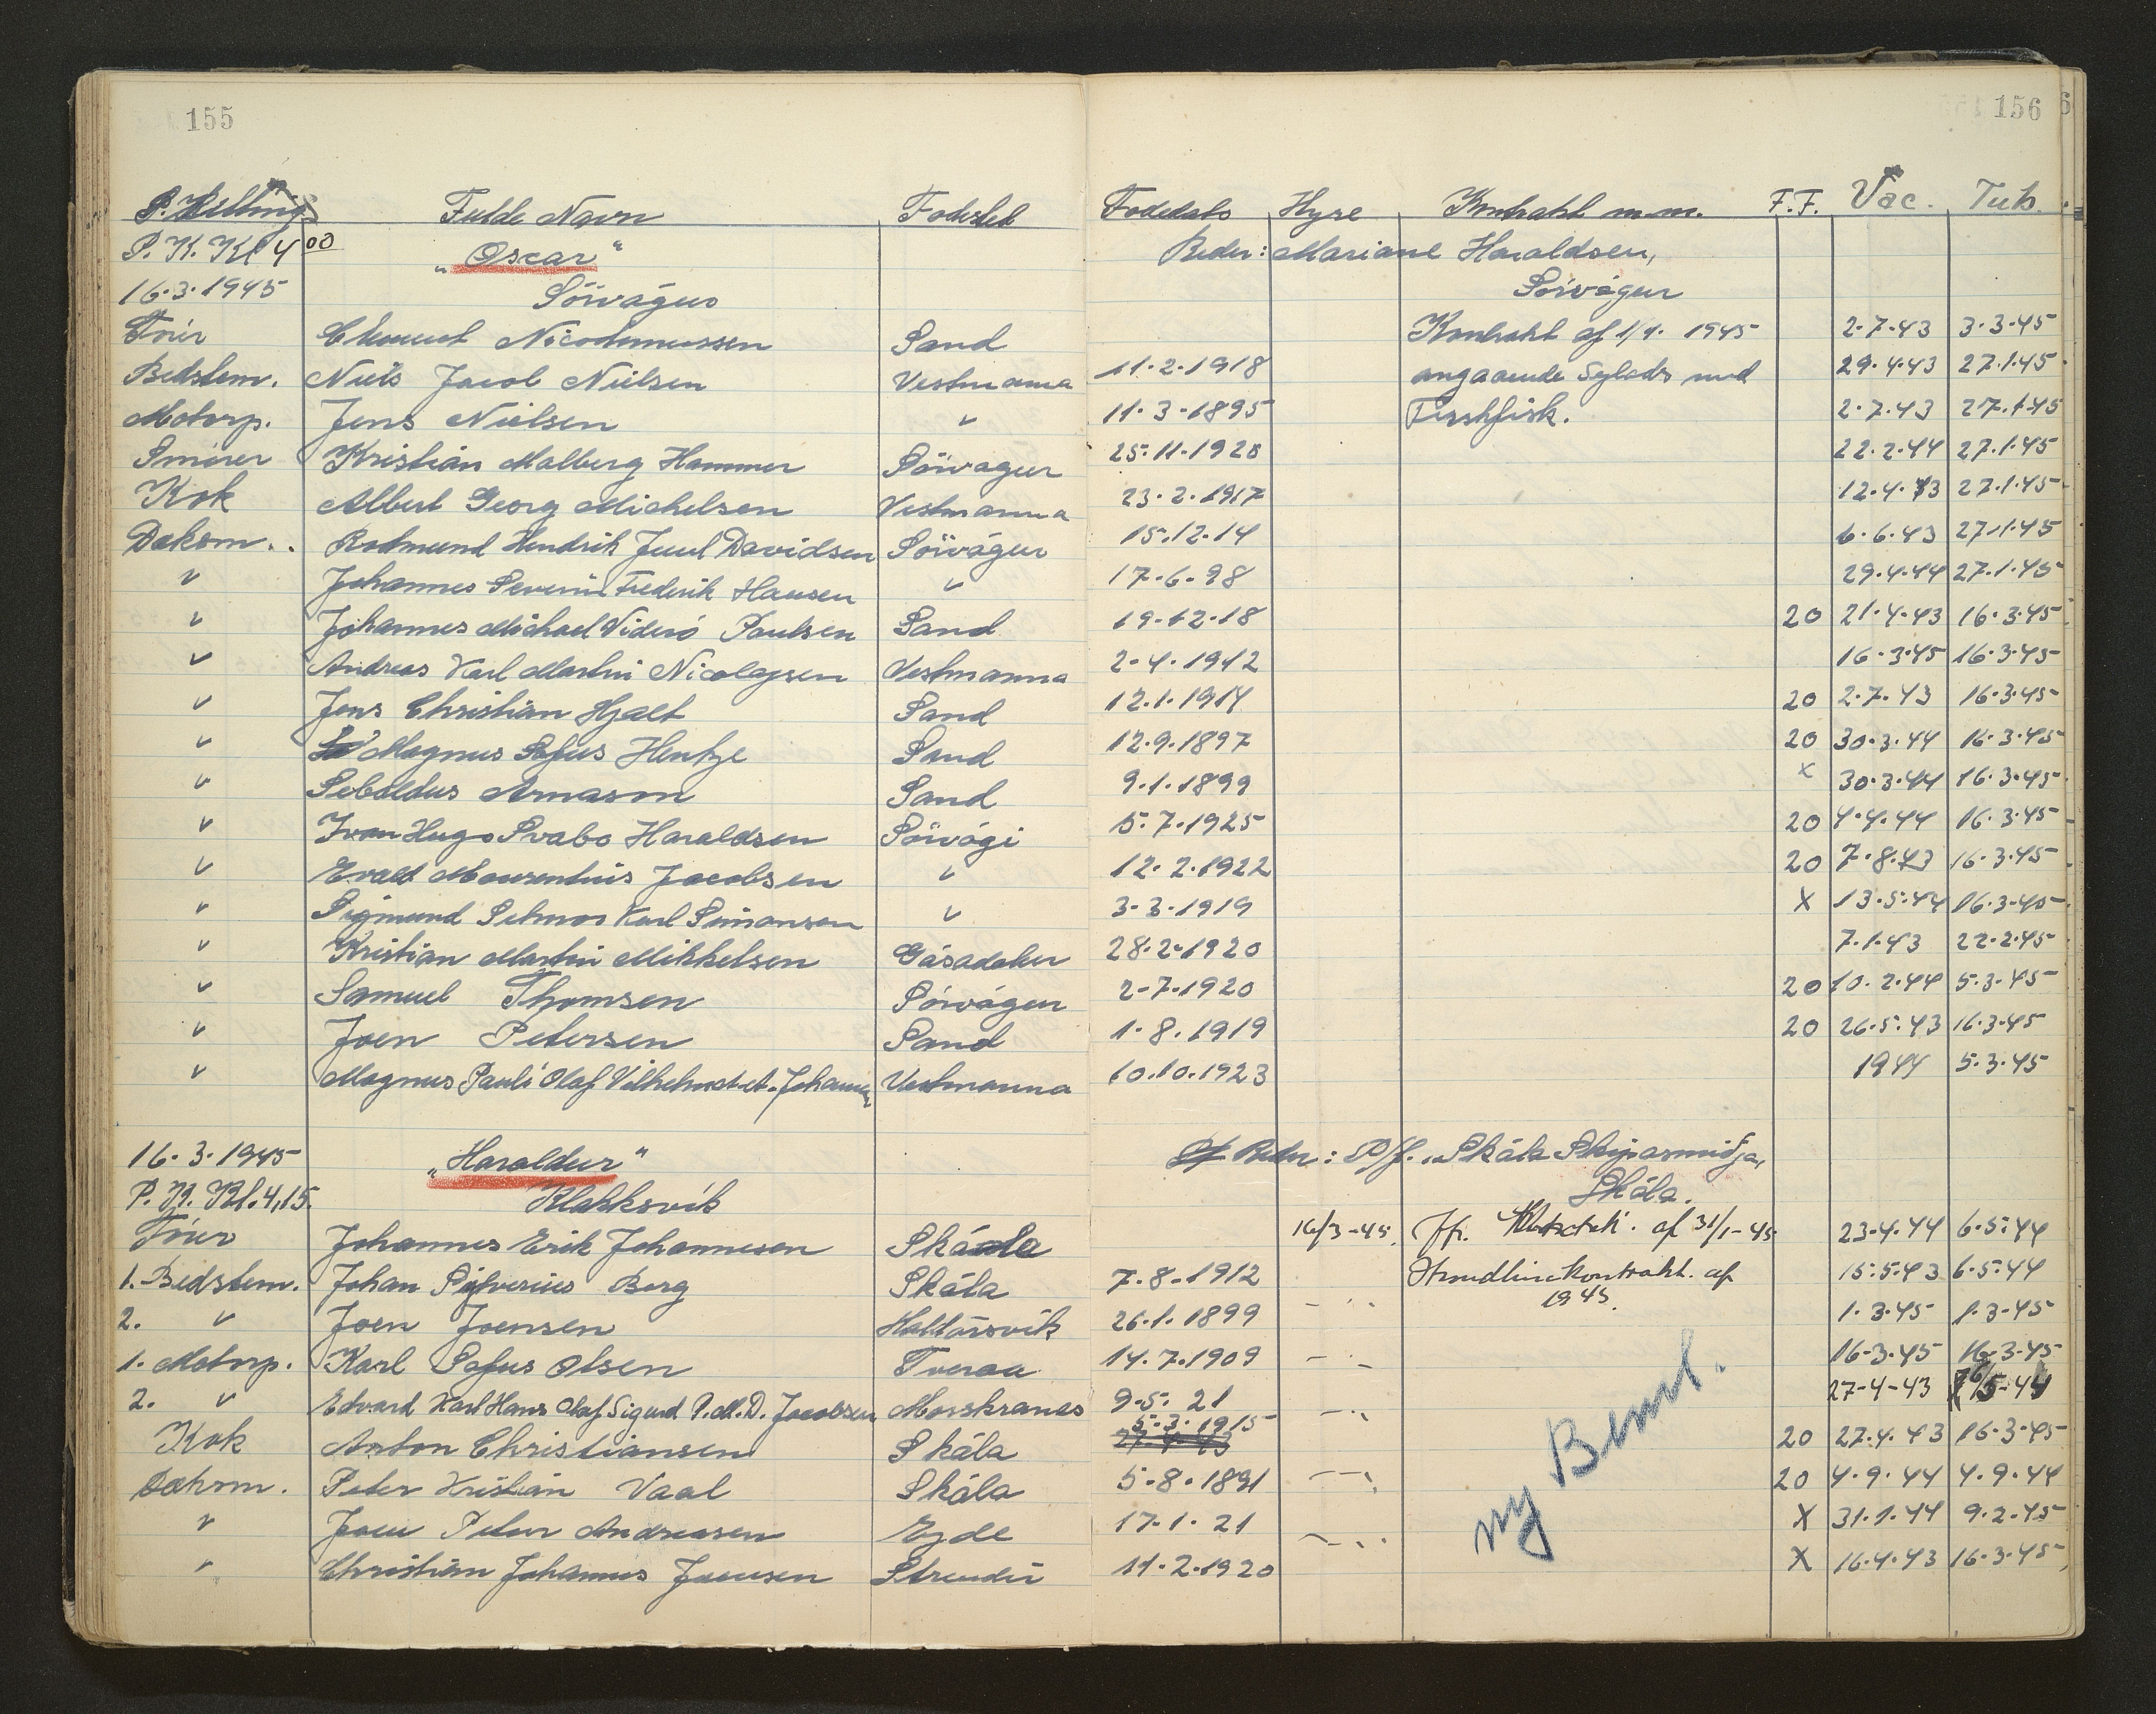 155
156
P. K. Fulde Navn Fødested Fødedato Hyre Kontrakt m.m. F.F. Vac. Tub.
P. K. Kl 4 00 "Oscar" Reder: Mariane Haraldsen,
16.3.1945 Sörvágur Sörvágur
Förer Nicodemussen Sand Kontrakt af 1/1. 1945 2.7.43 3.3.45
Bedstem. Niels Jacob Nielsen Vestmanna 11.2.1918 angaaende med 29.4.43 27.1.45
Motorp. Jens Nielsen " 11.3.1895 Ferskfisk. 2.7.43 27.1.45
Smörer Kristian Malberg Hammer Sörvágur 25.11.1928 22.2.44 27.1.45
Kok Albert Georg Michelsen Vestmanna 23.2.1917 12.4.43 27.1.45
Dæksm. Rodmund Hendrik Juul Davidsen Sörvágur 15.12.14 6.6.43 27.1.45
" Johannes Severin Frederik Hansen " 17.6.98 29.4.44 27.1.45
" Johannes Michael Viderö Poulsen Sand 19.12.18 20 21.4.43 16.3.45
" Andreas Karl Martin Nicolajsen Vestmanna 2.4.1912 16.3.45 16.3.45
" Jens Christian Hjalt Sand 12.1.1914 20 2.7.43 16.3.45
" Magnus Sofus Hentze Sand 12.9.1897 20 30.3.44 16.3.45
" Seboldus Arnason Sand 9.1.1899 x 30.3.44 16.3.45
" Ivan Hugo Svabo Haraldsen Sörvági 5.7.1925 20 4.4.44 16.3.45
" Evald Mourentius Jacobsen " 12.2.1922 20 7.8.43 16.3.45
" Sigmund Selmar Karl Simonsen " 3.3.1919 X 13.5.44 16.3.45
" Kristian Martin Mikkelsen Gásadalur 28.2.1920 7.1.43 22.2.45
" Samuel Thomsen Sörvágur 2-7.1920 20 10.2.44 5.3.45
" Joen Petersen Sand 1.8.1919 20 26.5.43 16.3.45
" Magnus Pauli Olaf Vilhelm Vestmanna 10.10.1923 1944 5.3.45
16.3.1945 "Haraldur" Reder: P/f. "Skála Skipasmidja,
P. K. Kl. 4,15. Klakksvik Skála.
Förer Johannes Erik Johannesen Skála 16/3-45. Jfr. af 31/1-45 23.4.44 6.5.44
1. Bedstem. Johan Sylverius Berg Skála 7.8.1912 Haandlinekontrakt. af 15.5.43 6.5.44
1945.
2. " Joen Joensen Haldórsvik 26.1.1899 - " - 1.3.45 1.3.45
1. Motorp. Karl Sofus Olsen Tveraa 14.7.1909 - " - 16.3.45 16.3.45
2. " Edvard Karl Hans Olaf Sigurd P.M.D. Jacobsen Morskranes 9.5.21 - " - 27-4-43
Kok Anton Christiansen Skála 5.3.1915 20 27.4.43 16.3.45
Dæksm. Peter Kristian Vaal Skála 5.8.1891 - " - 20 4.9.44 4.9.44
" Joen Peter Andreasen Ejde 17.1.21 X 31.1.44 9.2.45
" Christian Johannes Joensen Strendir 11.2.1920 X 16.4.43 16.3.45
ny Bemt.